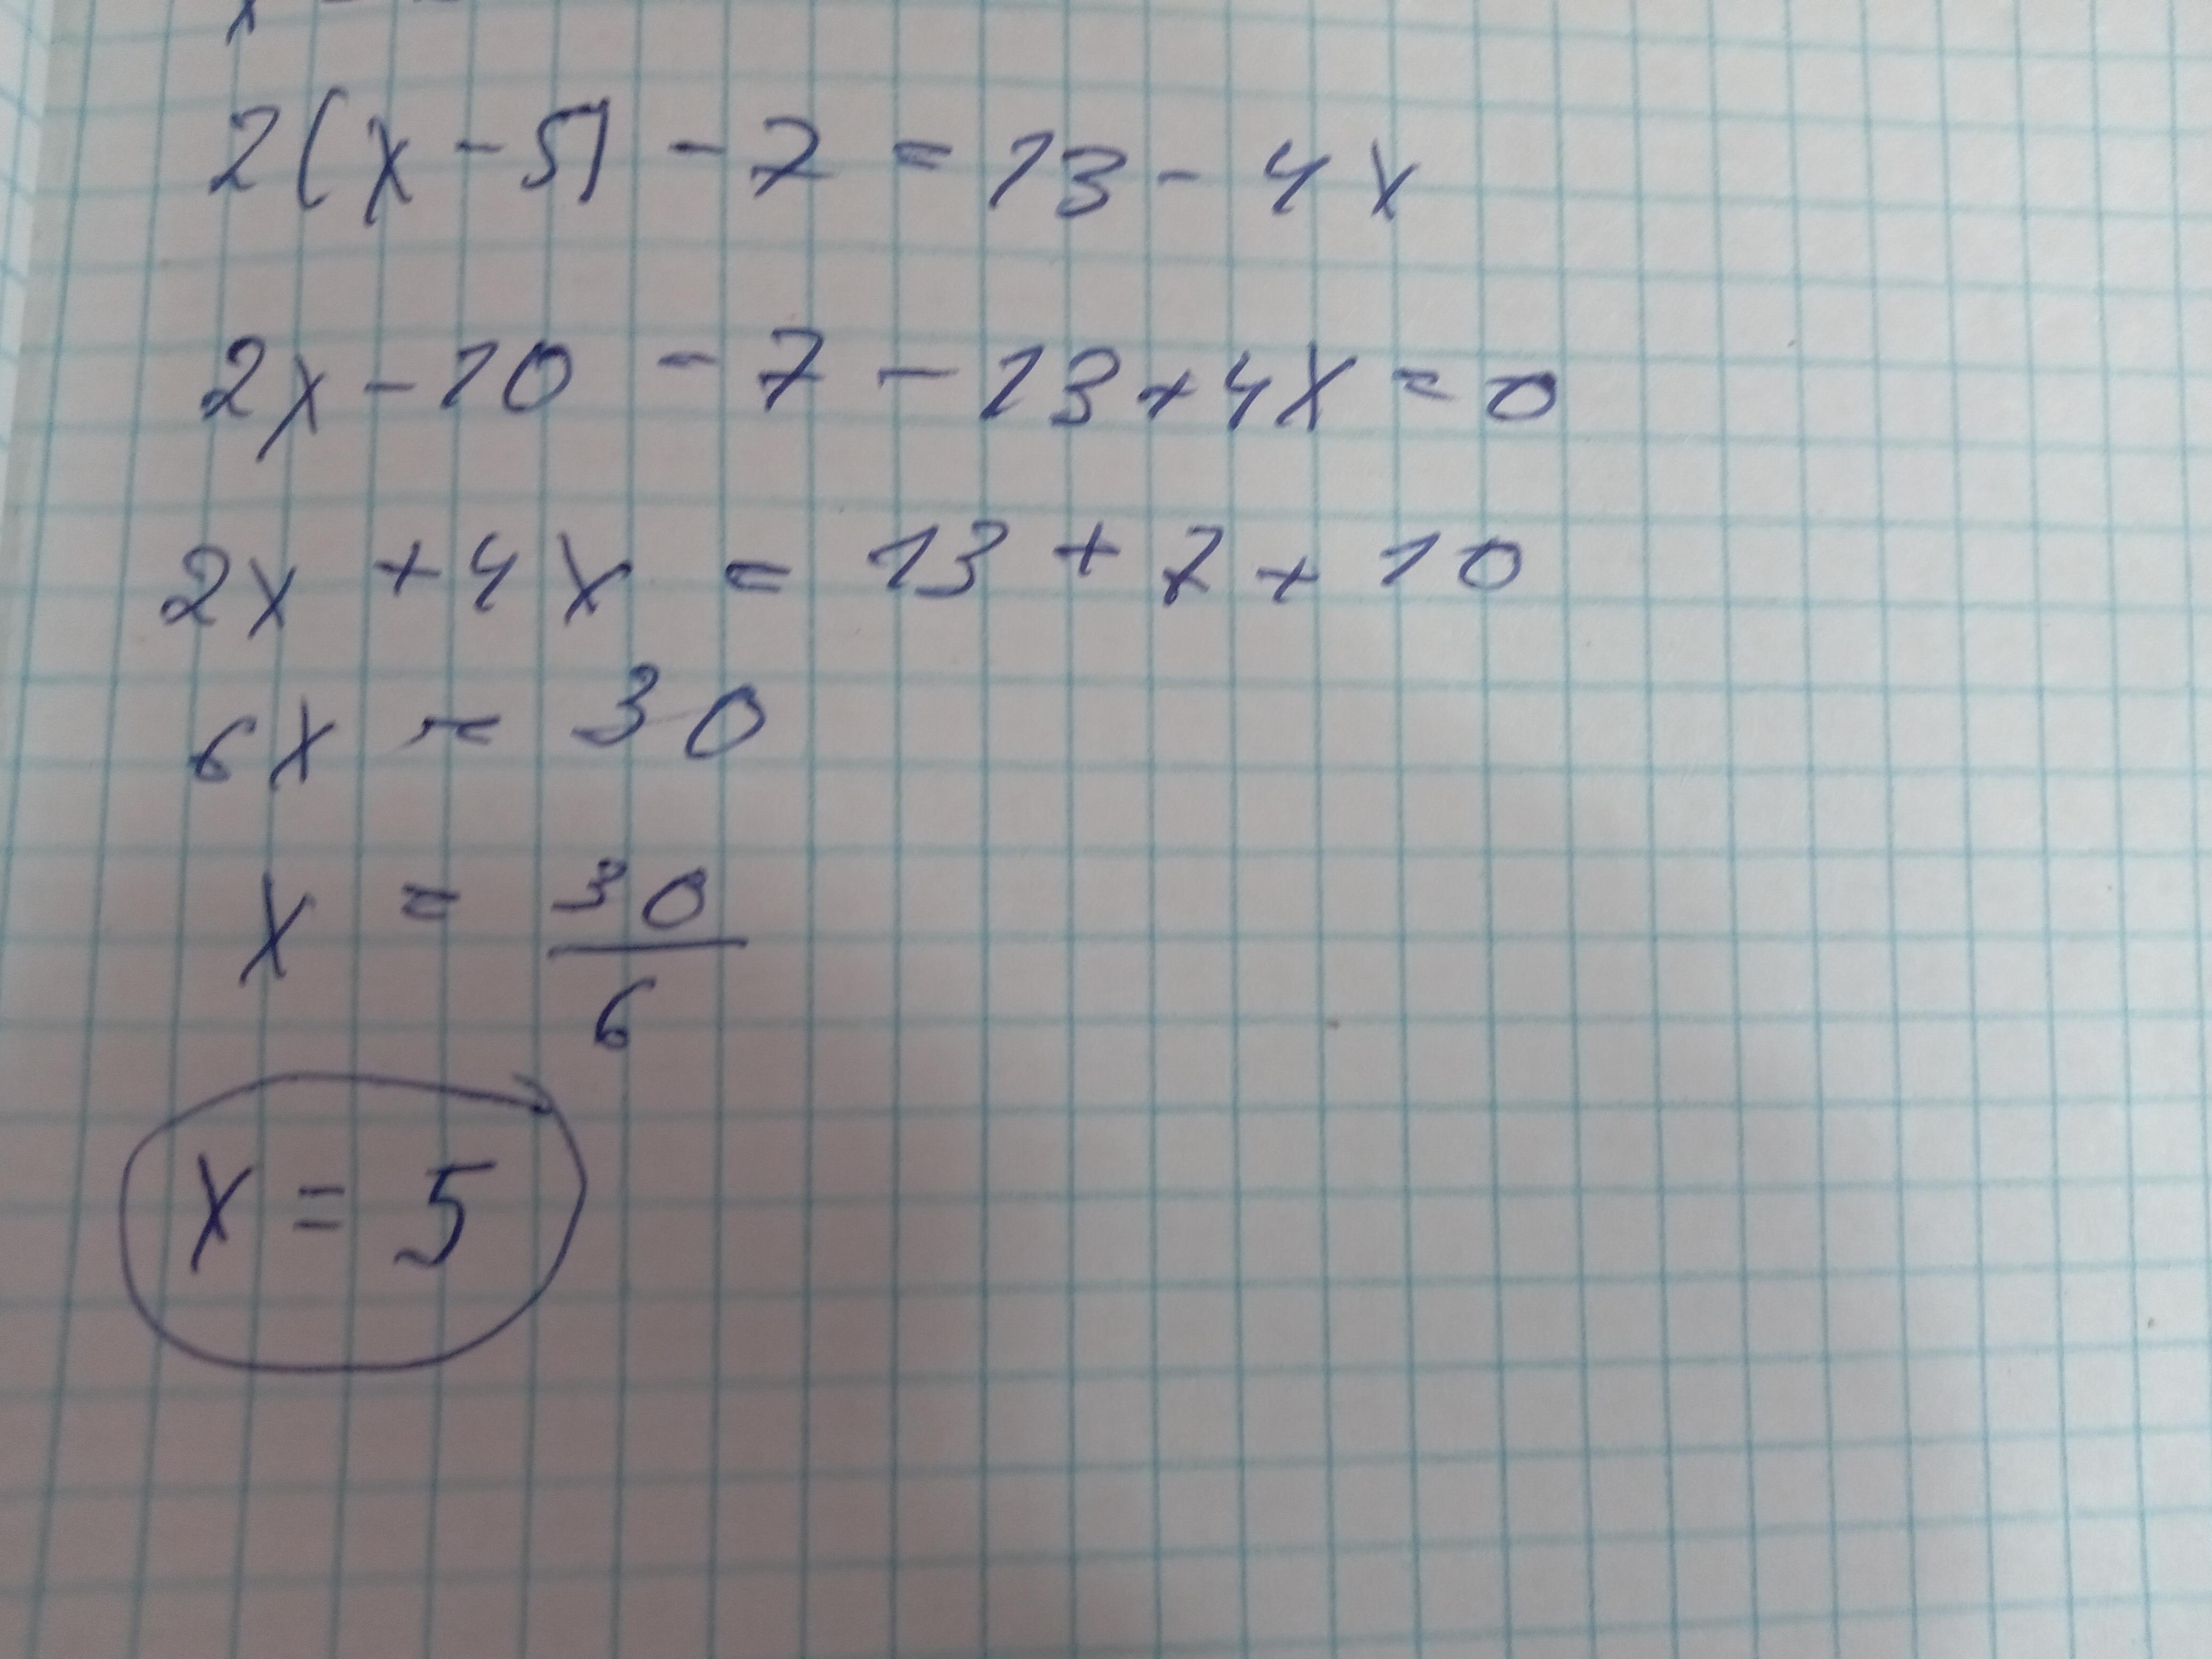 2(x - 5) - 7 = 13 - 4x
2x - 10 - 7 - 13 + 4x = 0
2x + 4x = 13 + 7 + 10
6x = 30
x = 30/6
x = 5